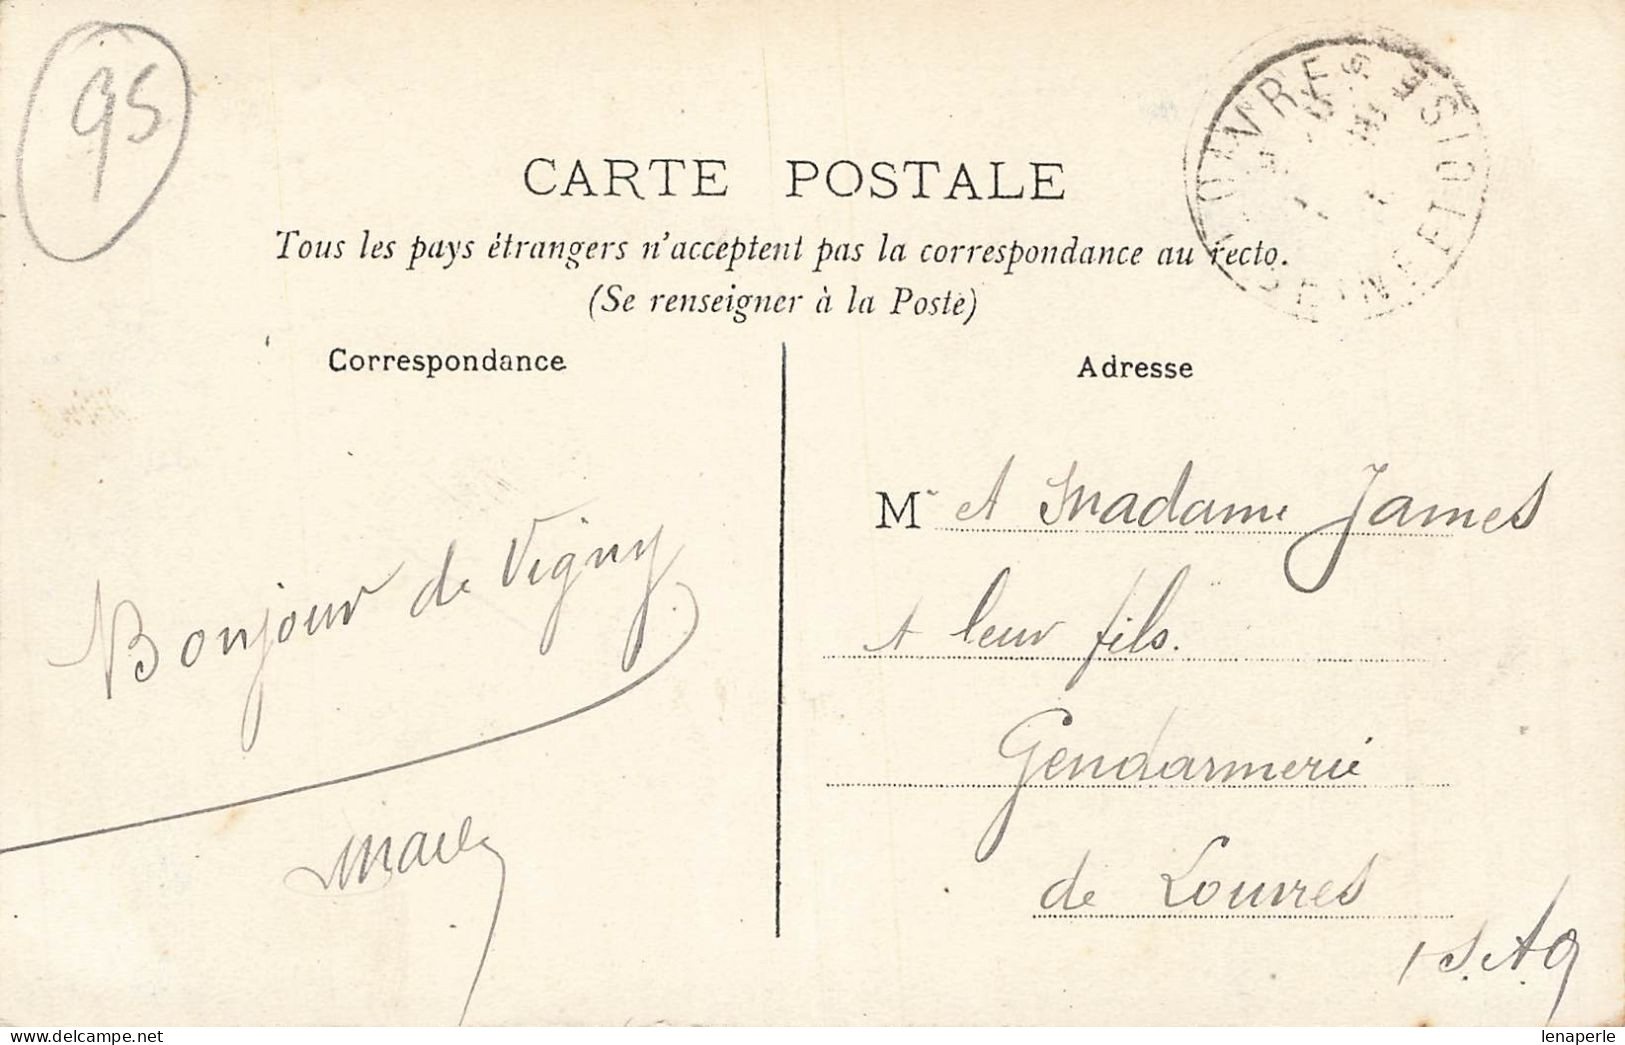 95
CARTE POSTALE
Tous les pays étrangers n'acceptent pas la correspondance au recto.
(Se renseigner à la Poste)
LOUVRES
SEINE ET OISE
Correspondance
Adresse
Bonjour de Vigny
M et Madame James
et leur fils.
Gendarmerie
de Louvres
S. et O
lenaperle